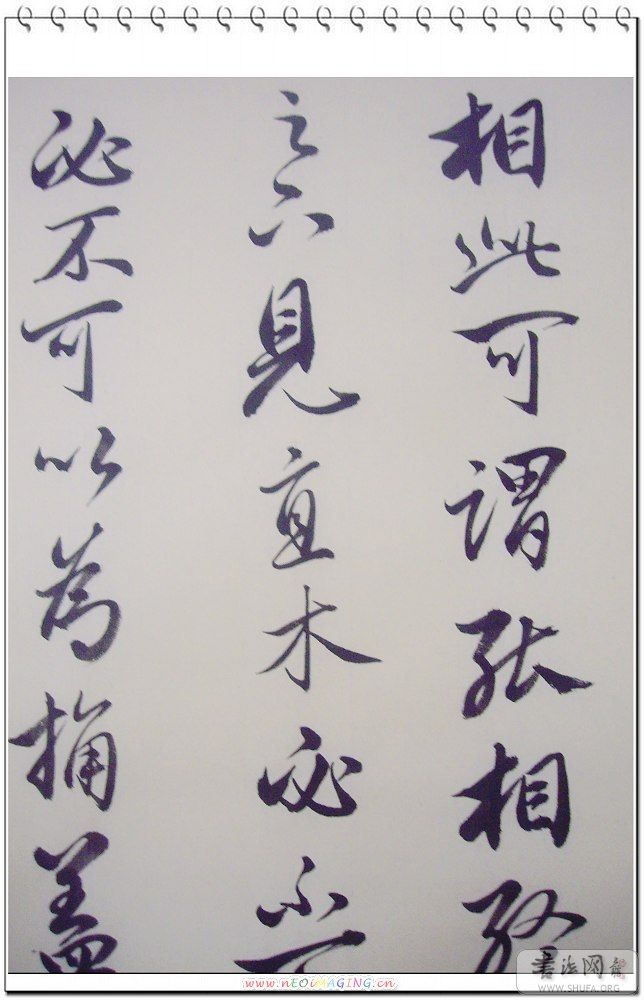 相此可謂能相終
足下見直木必不可
必不可以為桷盖
書法网
WWW.SHUFA.ORG
www.nEOiMAGiNG.cn